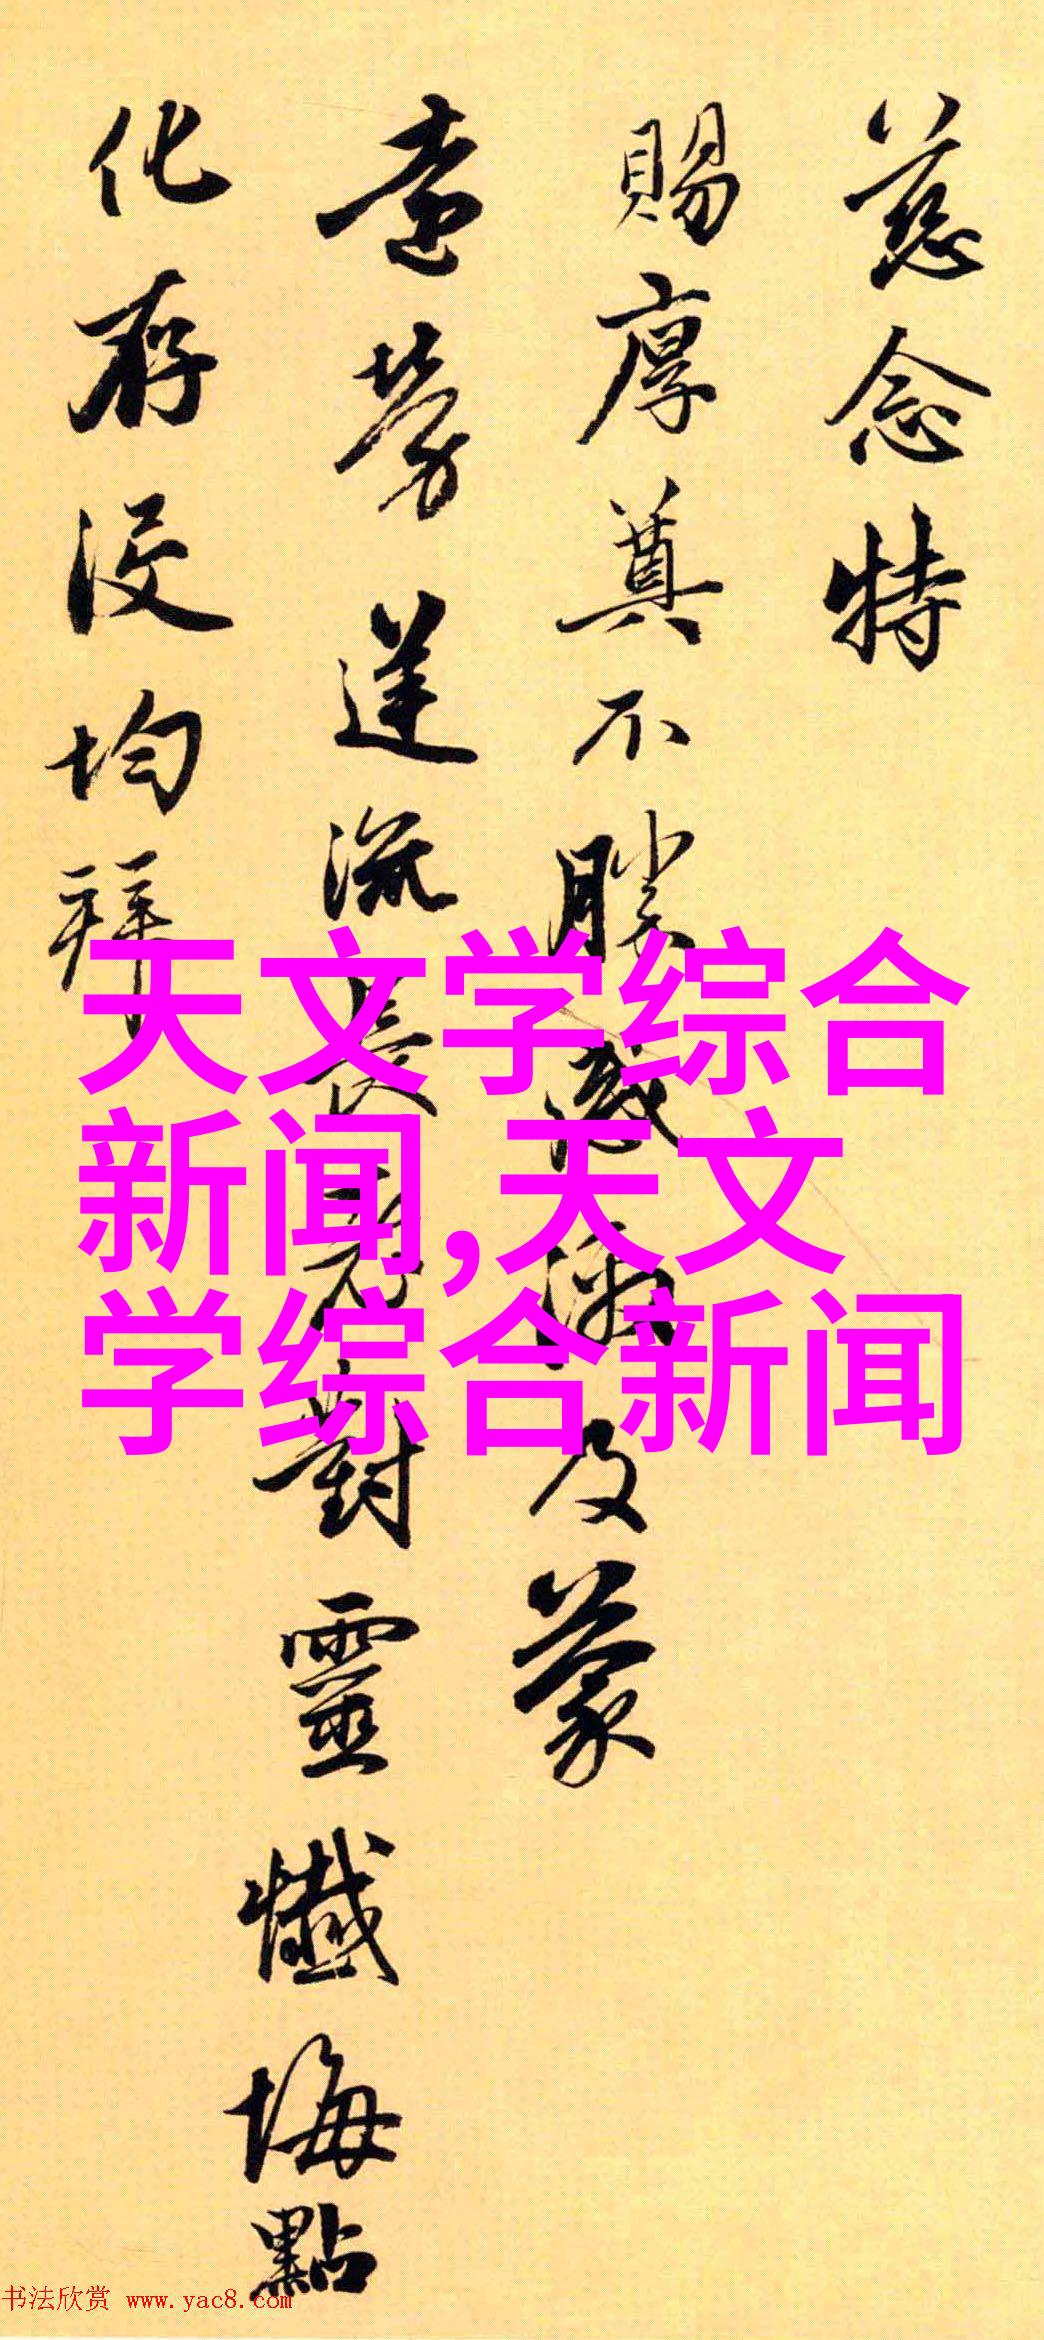 慈念特
賜厚奠不勝感及蒙
遠勞流長老對靈懺悔點
化存沒均拜
天文学综合
新闻,天文
学综合新闻
书法欣赏 www.yac8.com